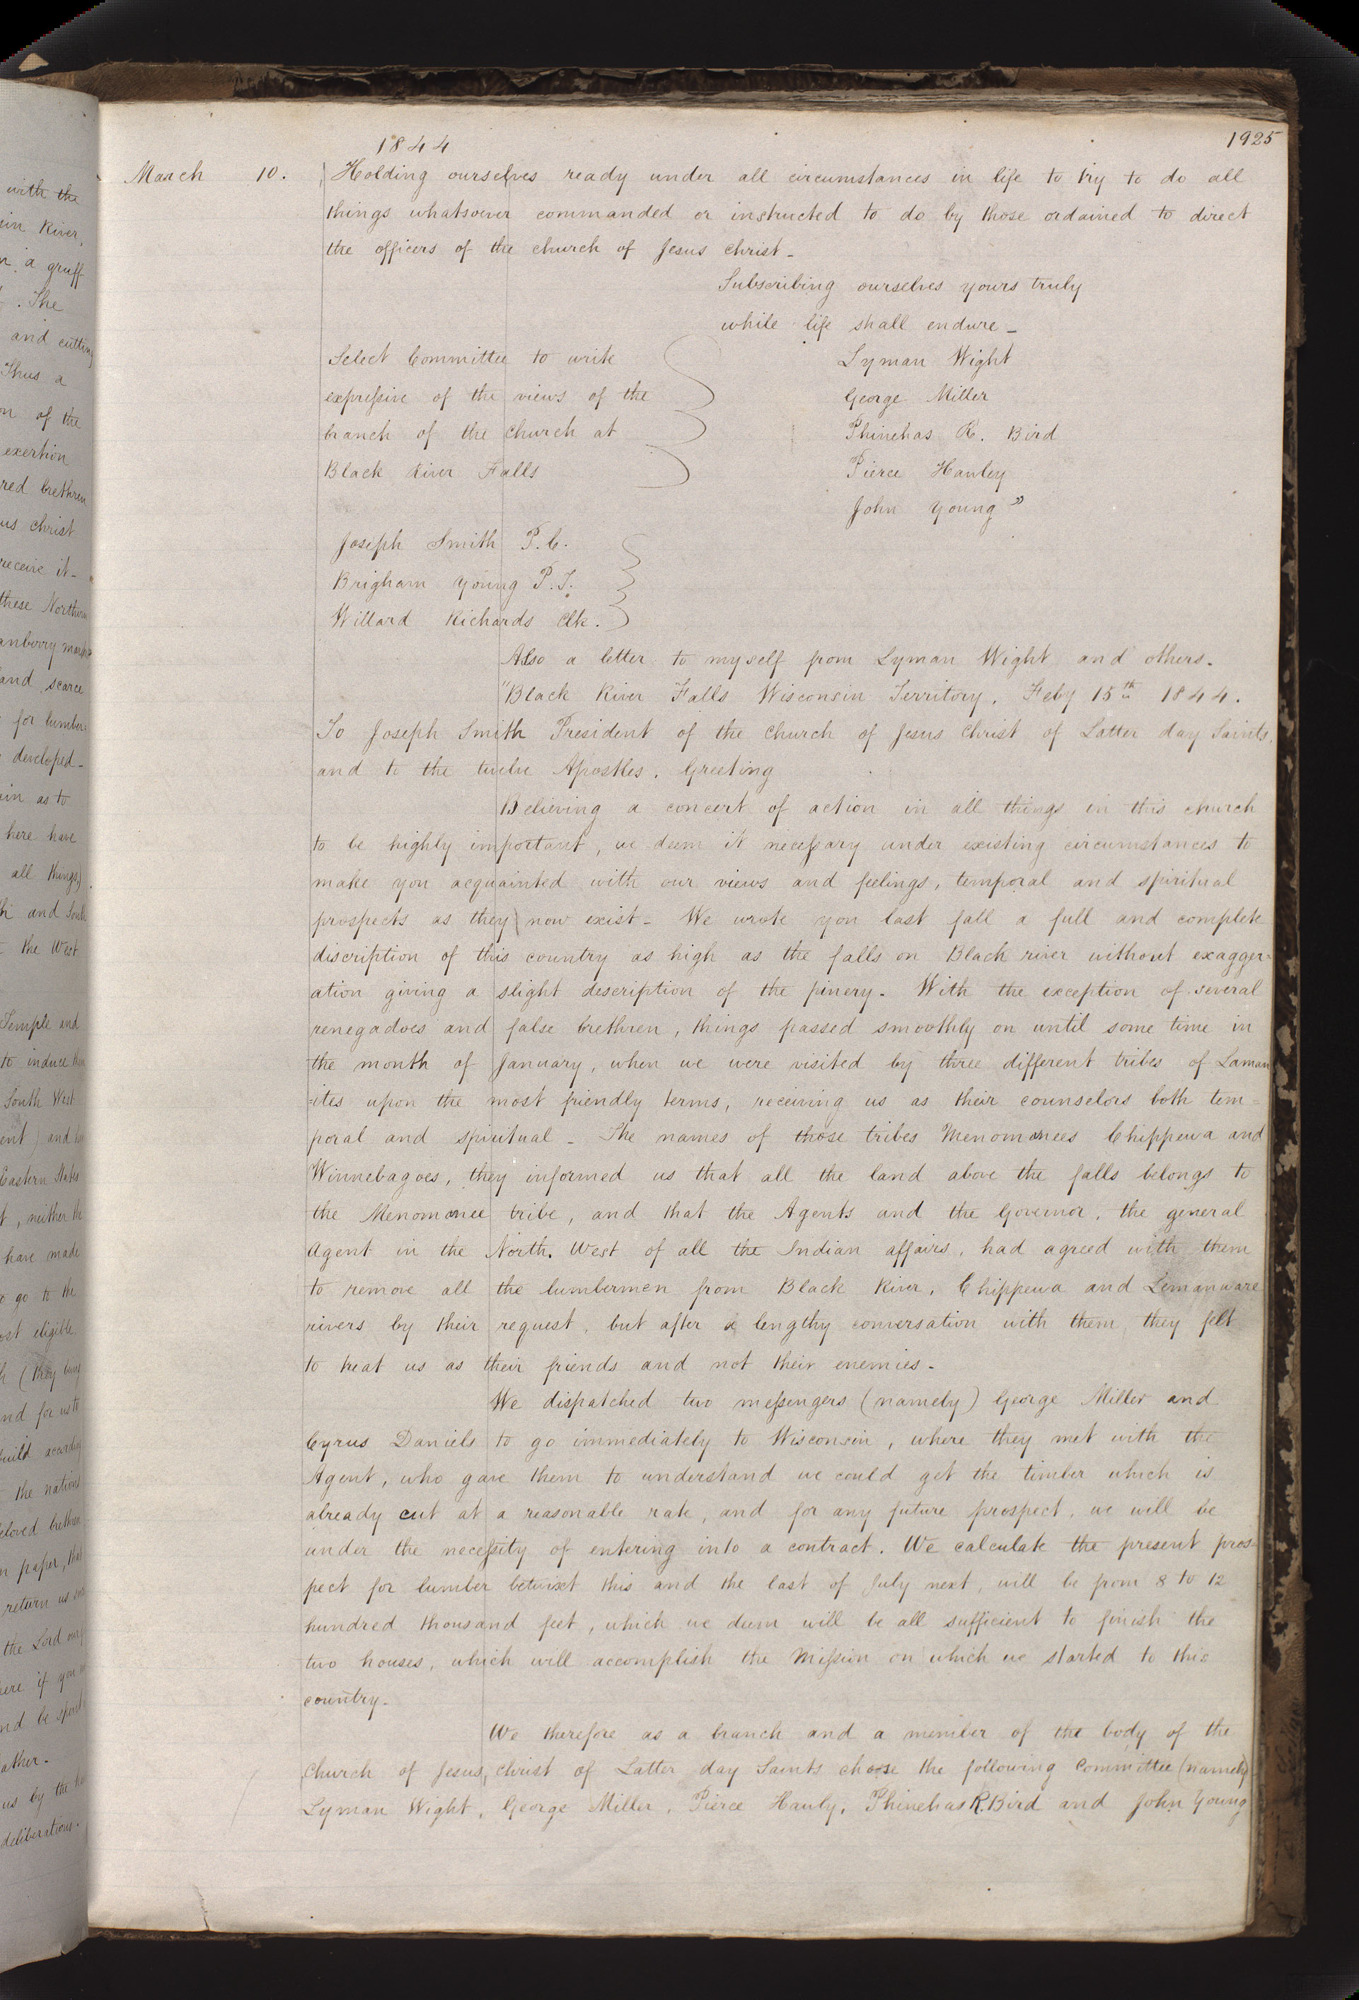 1844
1925
March 10. Holding ourselves ready under all circumstances in life to try to do all
things whatsoever commanded or instructed to do by those ordained to direct
the officers of the church of Jesus christ_
Subscribing ourselves yours truly
while life shall endure_
Select Committee to write
expressive of the views of the
branch of the church at
Black River Falls
Lyman Wight
George Miller
Phinehas R. Bird
Pierce Hawley
John Young"
Joseph Smith P.C.
Brigham Young P.T.
Willard Richards Clk.
Also a letter to myself from Lyman Wight and others.
"Black River Falls Wisconsin Territory. Feby 15th 1844.
To Joseph Smith President of the church of Jesus christ of Latter day Saints.
and to the twelve Apostles. Greeting
Believing a concert of action in all things in this church
to be highly important, we deem it necessary under existing circumstances to
make you acquainted with our views and feelings, temporal and spiritual
prospects as they now exist_ We wrote you last fall a full and complete
discription of this country as high as the falls on Black river without exagger-
ation giving a slight description of the pinery. With the exception of several
renegadoes and false brethren, things passed smoothly on until some time in
the month of January, when we were visited by three different tribes of Laman
=ites upon the most friendly terms, receiving us as their counselors both tem=
poral and spiritual_ The names of those tribes Menomonees Chippewa and
Winnebagoes, they informed us that all the land above the falls belongs to
the Menomonee tribe, and that the Agents and the Governor, the general
Agent in the North. West of all the Indian affairs, had agreed with them
to remove all the lumbermen from Black River, Chippewa and Lemanware
rivers by their request, but after a lengthy conversation with them, they felt
to treat us as their friends and not their enemies_
We dispatched two messengers (namely) George Miller and
Cyrus Daniels to go immediately to Wisconsin, where they met with the
Agent, who gave them to understand we could get the timber which is
already cut at a reasonable rate, and for any future prospect, we will be
under the necessity of entering into a contract. We calculate the present pros-
pect for lumber betwixt this and the last of July next, will be from 8 to 12
hundred thousand feet, which we deem will be all sufficient to finish the
two houses, which will accomplish the Mission on which we started to this
country_
We therefore as a branch and a member of the body of the
Church of Jesus, christ of Latter day Saints chose the following committee (namely)
Lyman Wight, George Miller, Pierce Hawly, Phinehas R. Bird and John Young